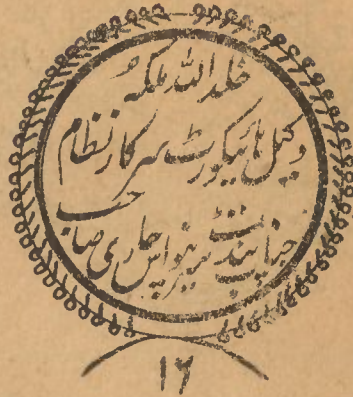 خلد اللہ ملکہ
وکیل ہائیکورٹ سرکار نظام
جناب پنڈت سرینواس چاری صاحب
۱۶